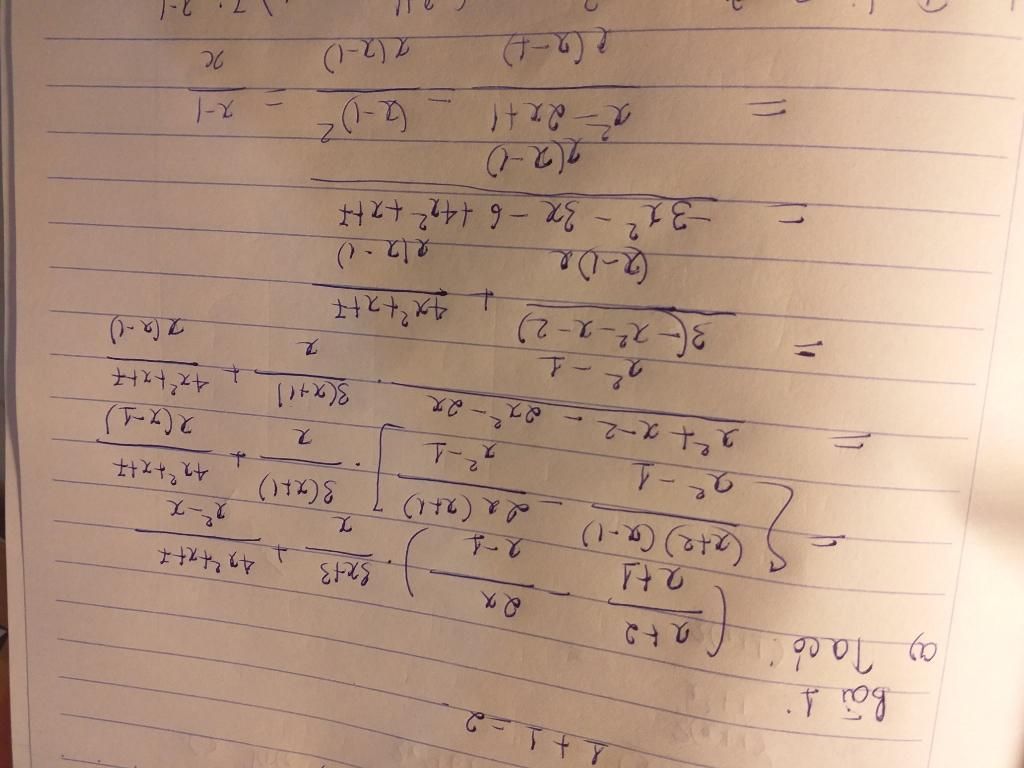 1 + 1 = 2
Bài 1:
a) Ta có: (\frac{x+2}{x+1} - \frac{2x}{x-1}) . \frac{3x+3}{x} + \frac{4x²+x+7}{x²-x}
= [\frac{(x+2)(x-1)}{x²-1} - \frac{2x(x+1)}{x²-1}] . \frac{3(x+1)}{x} + \frac{4x²+x+7}{x(x-1)}
= \frac{x²+x-2-2x²-2x}{x²-1} . \frac{3(x+1)}{x} + \frac{4x²+x+7}{x(x-1)}
= \frac{3(-x²-x-2)}{(x-1)x} + \frac{4x²+x+7}{x(x-1)}
= \frac{-3x²-3x-6+4x²+x+7}{x(x-1)}
= \frac{x²-2x+1}{x(x-1)} = \frac{(x-1)²}{x(x-1)} = \frac{x-1}{x}